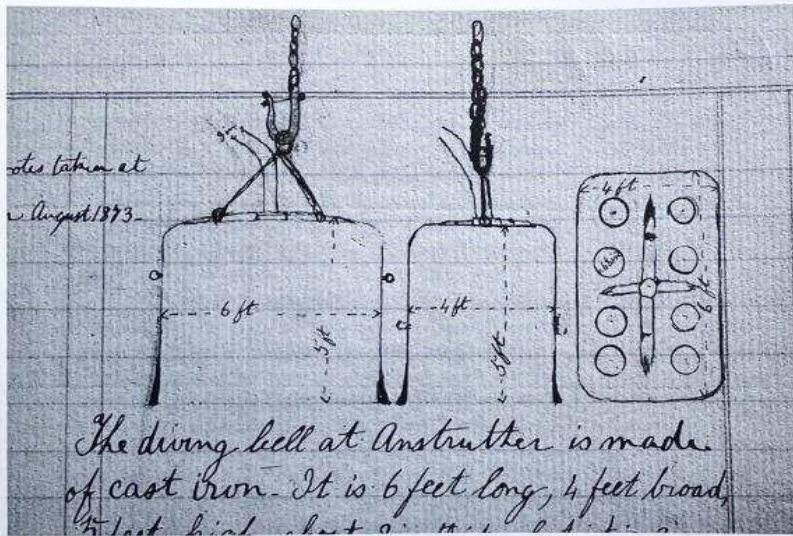 otes taken at
August 1873-
6 ft
5 ft
4 ft
5 ft
4 ft
6 ft
The diving bell at Anstruther is made
of cast iron. It is 6 feet long, 4 feet broad,
5 feet high, about